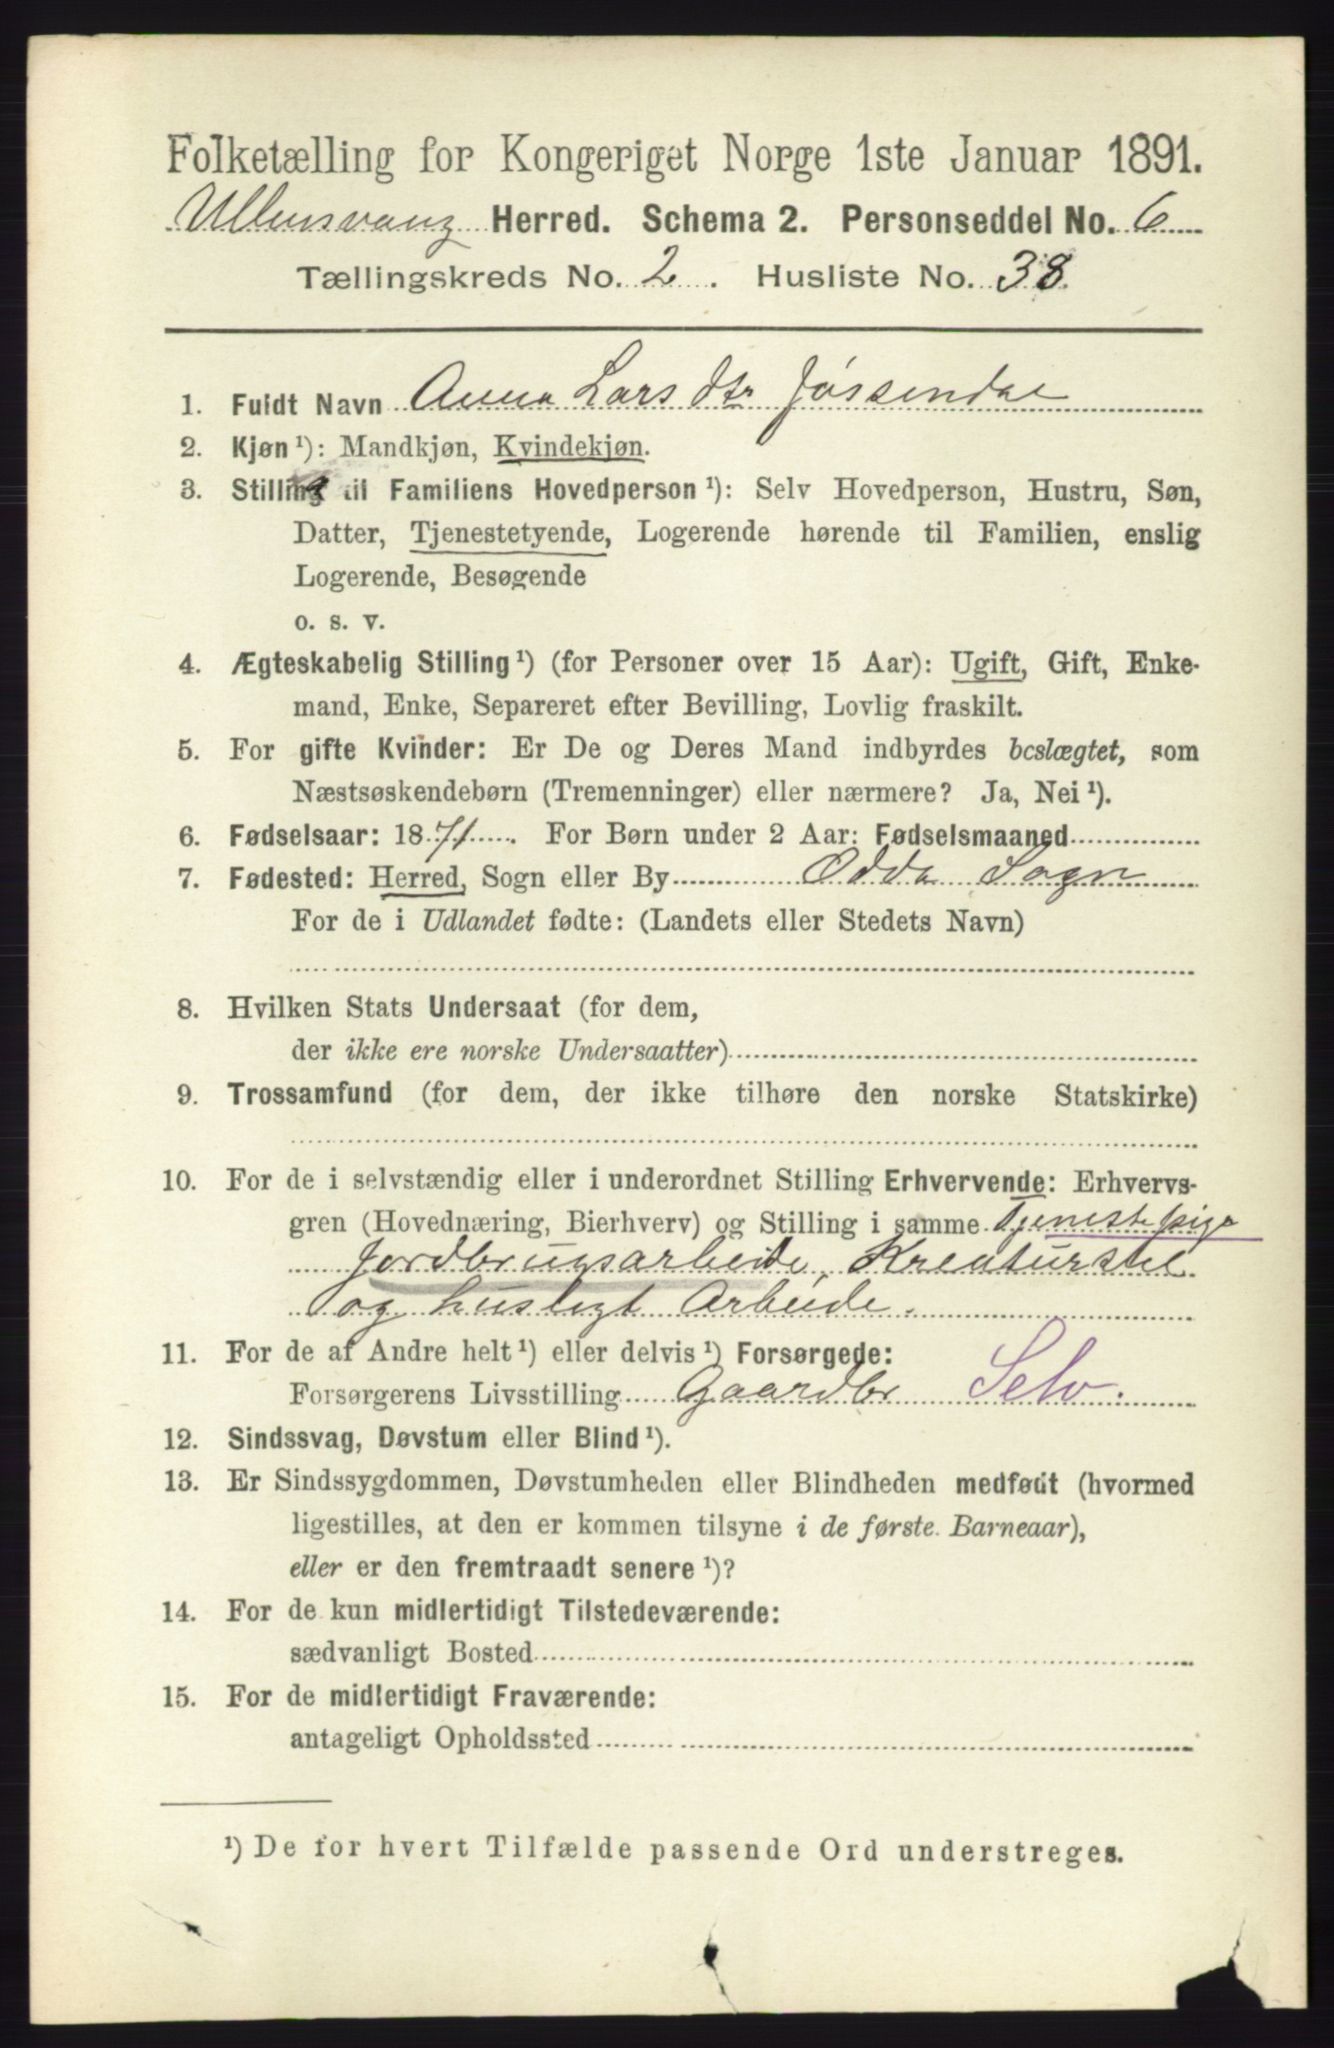 Folketælling for Kongeriget Norge 1ste Januar 1891.
Ullensvang Herred. Schema 2. Personseddel No. 6
Tællingskreds No. 2. Husliste No. 38.
1. Fuldt Navn Anna Larsdtr Jøssendal
2. Kjøn¹): Mandkjøn, Kvindekjøn.
3. Stilling til Familiens Hovedperson¹): Selv Hovedperson, Hustru, Søn,
Datter, Tjenestetyende, Logerende hørende til Familien, enslig
Logerende, Besøgende
o. s. v.
4. Ægteskabelig Stilling¹) (for Personer over 15 Aar): Ugift, Gift, Enke-
mand, Enke, Separeret efter Bevilling, Lovlig fraskilt.
5. For gifte Kvinder: Er De og Deres Mand indbyrdes beslægtet, som
Næstsøskendebørn (Tremenninger) eller nærmere? Ja, Nei¹).
6. Fødselsaar: 1871. For Børn under 2 Aar: Fødselsmaaned
7. Fødested: Herred, Sogn eller By Odda Sogn
For de i Udlandet fødte: (Landets eller Stedets Navn)
8. Hvilken Stats Undersaat (for dem,
der ikke ere norske Undersaatter)
9. Trossamfund (for dem, der ikke tilhøre den norske Statskirke)
10. For de i selvstændig eller i underordnet Stilling Erhvervende: Erhvervs-
gren (Hovednæring, Bierhverv) og Stilling i samme Tjenestepige
Jordbrugsarbeide, Kreaturstel
og husligt Arbeide.
11. For de af Andre helt¹) eller delvis¹) Forsørgede:
Forsørgerens Livsstilling Gaardbr Selv.
12. Sindssvag, Døvstum eller Blind¹).
13. Er Sindssygdommen, Døvstumheden eller Blindheden medfødt (hvormed
ligestilles, at den er kommen tilsyne i de første Barneaar),
eller er den fremtraadt senere¹)?
14. For de kun midlertidigt Tilstedeværende:
sædvanligt Bosted
15. For de midlertidigt Fraværende:
antageligt Opholdssted
¹) De for hvert Tilfælde passende Ord understreges.